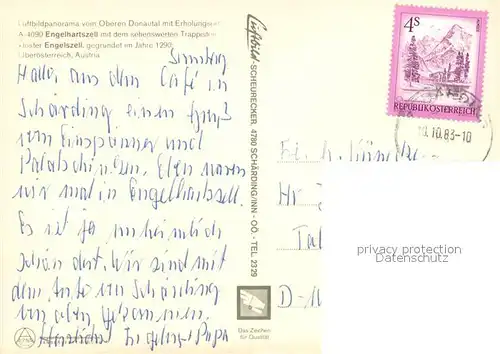 Luftbildpanorama vom Oberen Donautal mit Erholungsort
A-4090 Engelhartszell mit dem sehenswerten Trappisten-
kloster Engelszell, gegründet im Jahre 1290,
Oberösterreich, Austria
Samstag
Hallo, aus dem Café in
Schärding einen Gruß
vom Einspänner und
Palatschinken. Eben waren
wir mal in Engelhartszell.
Es ist ja unheimlich
schön dort. Wir sind mit
dem Auto von Schärding
gekommen.
Herzlichst Ingeborg + Papa
Luftbild-SCHEURECKER, 4780 SCHÄRDING/INN - OÖ. - TEL. 2329
4S
REPUBLIK ÖSTERREICH
10.83-10
D-
Das Zeichen
für Qualität
privacy protection
DSGVO